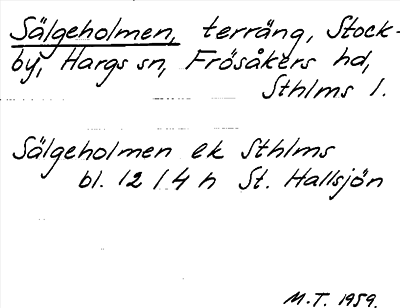 Sälgeholmen, terräng, Stock-
by, Hargs sn, Frösåkers hd,
Sthlms l.
Sälgeholmen ek Sthlms
bl. 12 14 h St. Hallsjön
M.T. 1959.